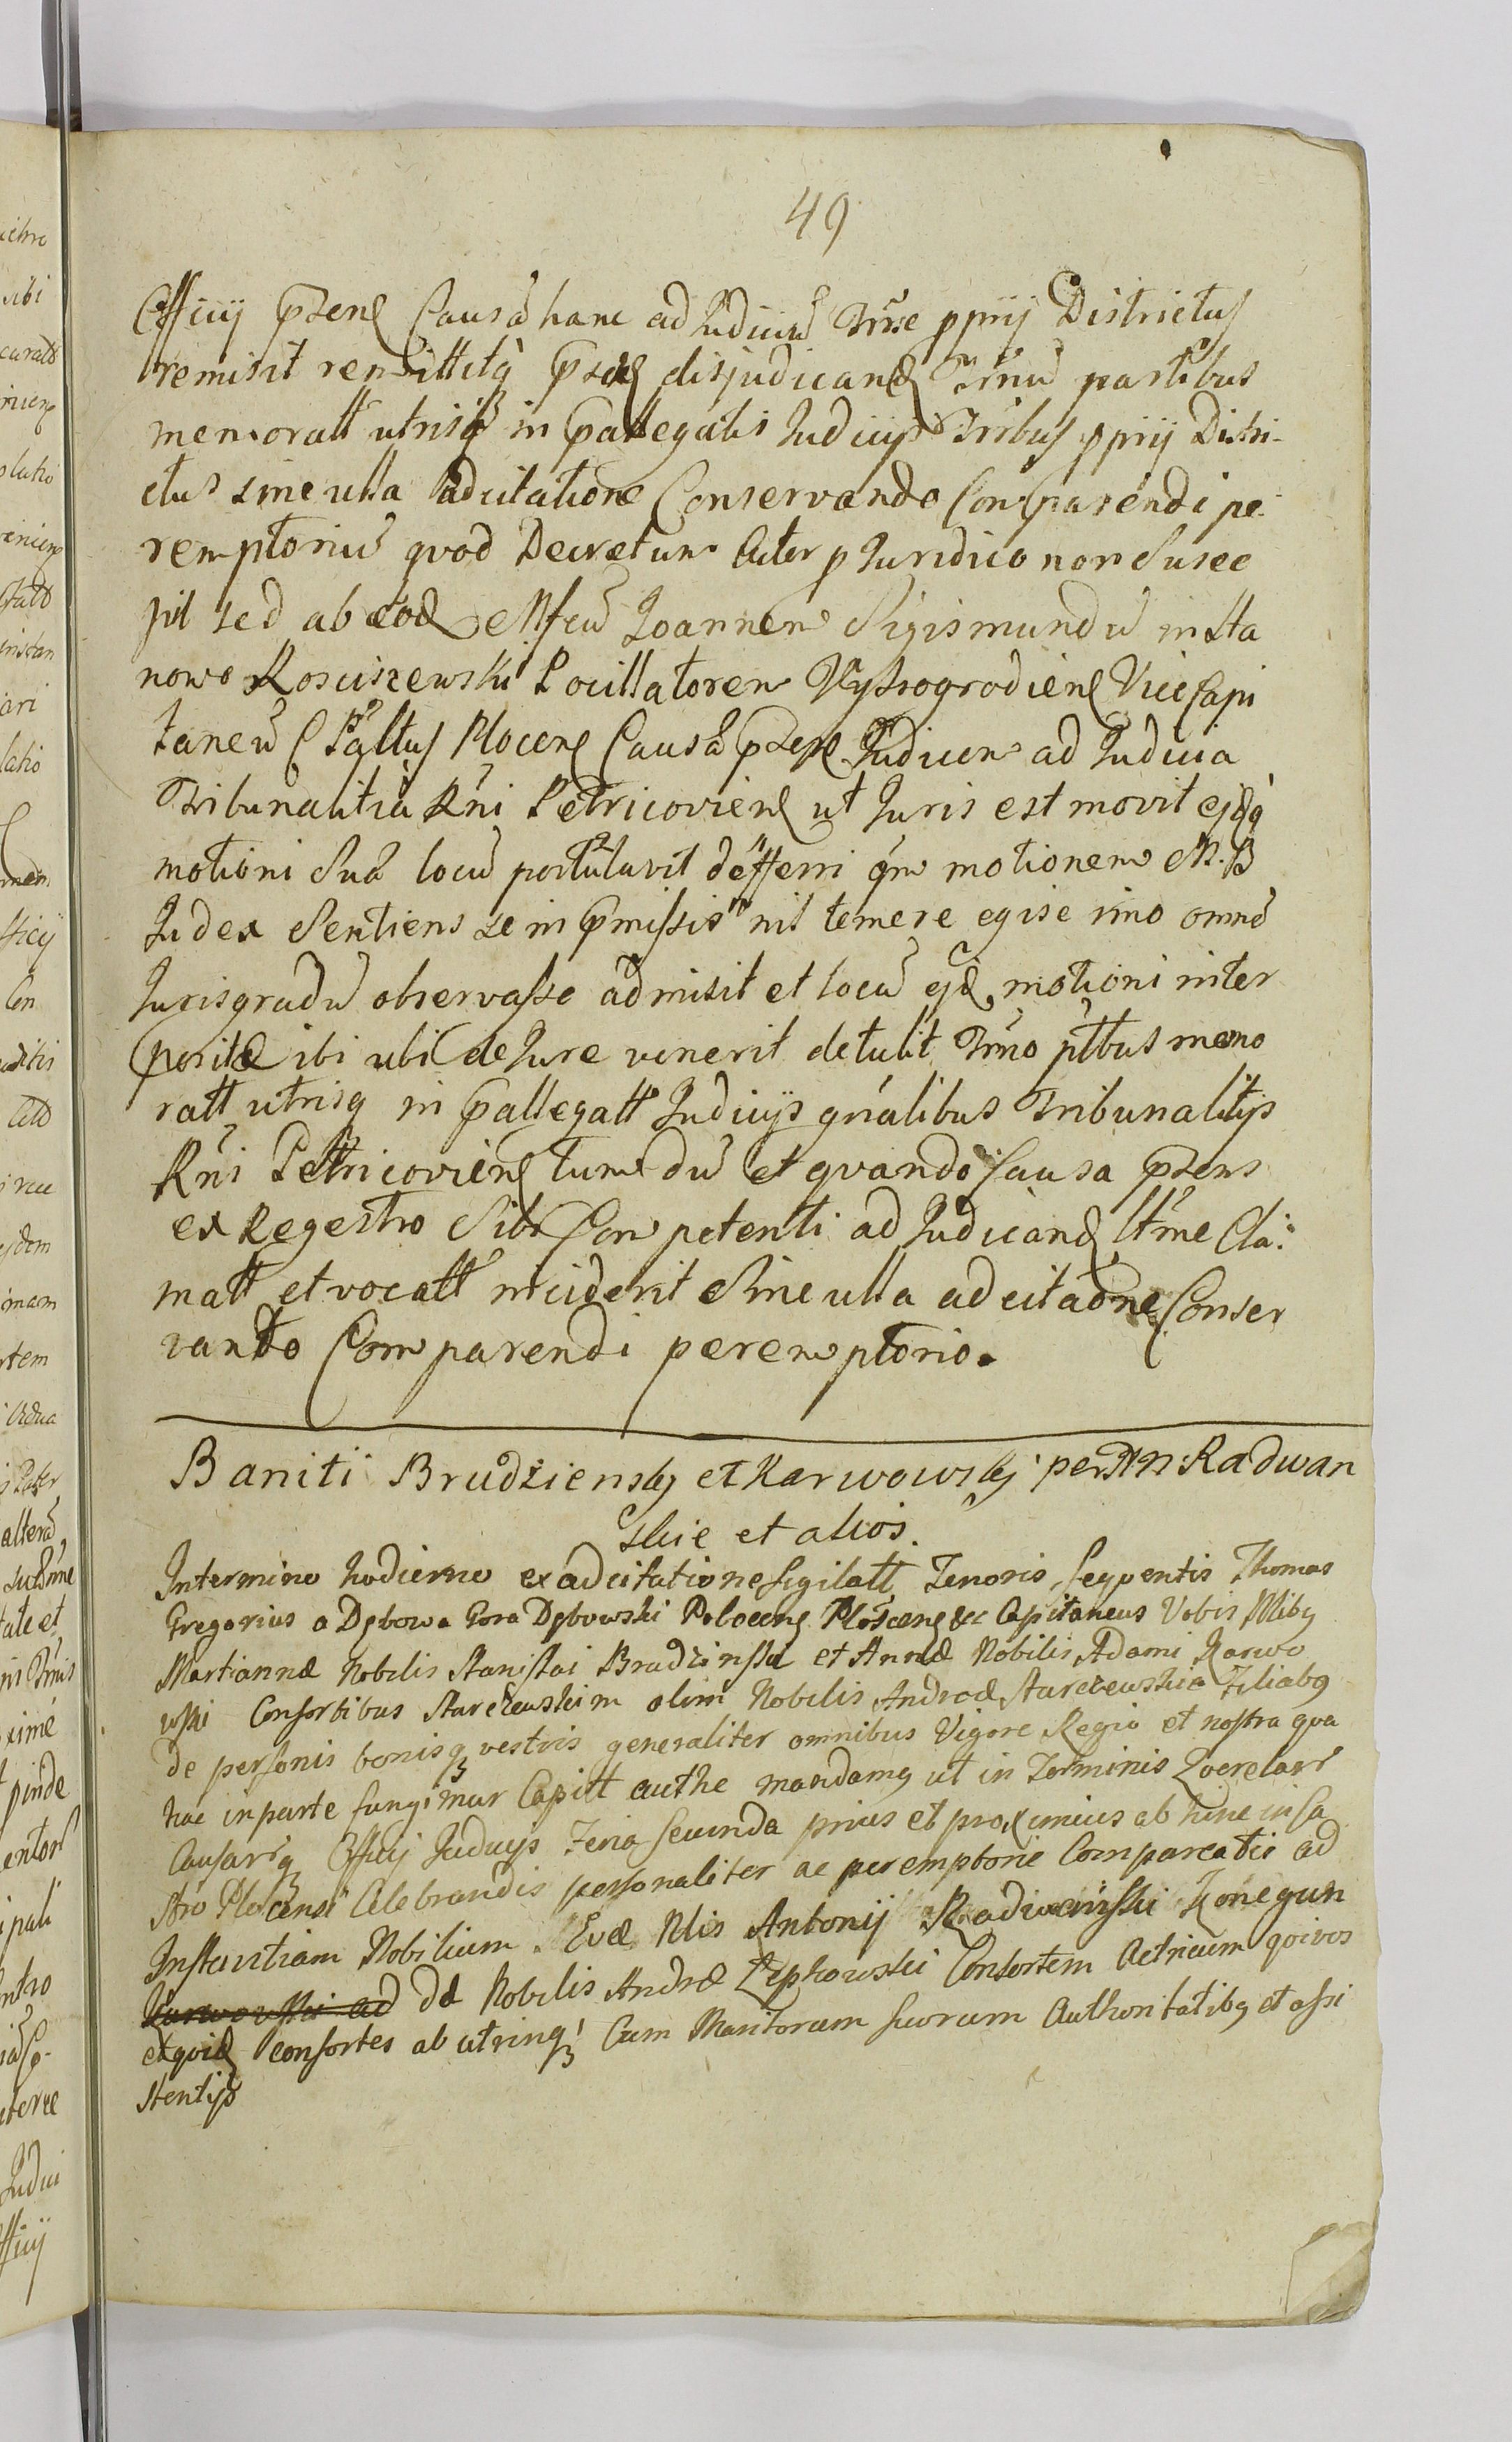 49
Officij pzens Causã hanc ad Judiciũ Trrse pprij Districtus
remisit remittitq̀ pzens disjudicand Trnũ partibus
memoratt utrisq in pallegatis Judicijs Trribus pprij Distri-
ctus sine ulla adcitatione Conservando Comparendi pe-
remptoriũ qvod Decretum Actor p Juridico non Susce
pit sed ab eod Mfcũ Joannem Sigismundũ in Sta
nowo Kosciszewski Pocillatorem Wyszogrodiens Vice Capi
taneũ C Pallus Plocens Causã pzens Judicem ad Judicia
Tribunalitia Rñi Petricoviens ut Juris est movit ejdq̀
motioni Suã locũ postulavit defferri qm motionem M. B
Judex Sentiens se in pmissis nil temere egise imo omnẽ
Juris gradũ observasse admisit et locũ ejd motioni inter
positæ ibi ubi de Jure venerit detulit Trno ptbus memo
ratt utrisq in pallegatt Judicijs gñalibus Tribunalitijs
Rñi Petricoviens tum dũ et qvando Causa pzens
ex Regestro Sibi Competenti ad Judicand ltme Cla:
matt et vocatt inciderit Sine ulla adcitaõne Conser
vando Comparendi peremptorio.
Baniti Brudziensky et Karwowsky per NN: Radwan
skie et alios.
In termino hodierno ex adcitatione sigilatt Tenoris seqventis Thomas
Gregorius a Dębowa Gora Dębowski Plocens & Capitaneus Vobis Nlibq
Martiannæ Nobilis Stanislai Brudzinski et Annæ Nobilis Adami Karwo
wski Consortibus Starczewskim olim Nobilis Andreæ Starczewski Filiabq
de personis bonisq vestris generaliter omnibus Vigore Regio et nostra qva
hac in parte fungimur Capitt authe mandamq ut in Terminis Qverelarũ
Causarũq Officij Judicijs Feria Secunda prius et proximius ab hinc in Ca
stro Plocensi Celebrandis personaliter ac peremptorie Compareatis ad
Instantiam Nobilium Evæ Nlis Antonij Radwanski Konegun
Karwowski ad dæ Nobilis Andreæ Zepkowski Consortem Actricum qvivos
et qvid consortes ab utrinq! Cum Maritorum suorum Authoritatibq et assi
stentijs